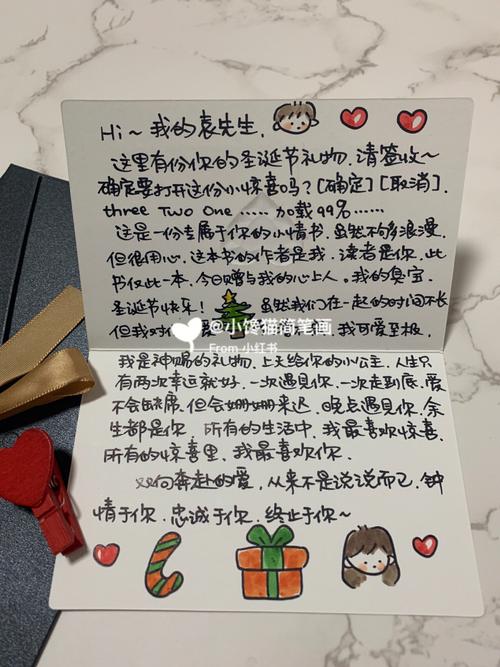 Hi~ 我的袁先生,
这里有份你的圣诞节礼物,请签收~
确定要打开这份小惊喜吗?[确定][取消].
three Two One ..... 加载99%......
这是一份专属于你的小情书.虽然不够浪漫.
但很用心,这本书的作者是我.读者是你.此
书仅此一本,今日赠与我的心上人.我的臭宝.
圣诞节快乐! 虽然我们在一起的时间不长
但我对你 我可爱至极.
@小馋猫简笔画
From 小红书
我是神赐的礼物.上天给你的小公主.人生只
有两次幸运就好.一次遇见你.一次走到底.爱
不会缺席.但会姗姗来迟.晚点遇见你.余
生都是你.所有的生活中.我最喜欢惊喜.
所有的惊喜里.我最喜欢你.
双向奔赴的爱,从来不是说说而已.钟
情于你.忠诚于你.终止于你~